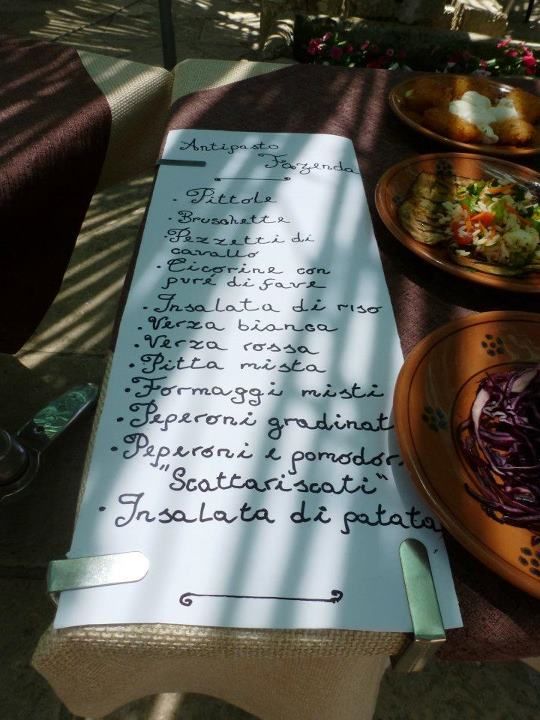 Antipasto
Fazenda
· Pittole
· Bruschette
· Pezzetti di
cavallo
· Cicorine con
purè di fave
· Insalata di riso
· Verza bianca
· Verza rossa
· Pitta mista
· Formaggi misti
· Peperoni gradinat
· Peperoni e pomodor
"Scattariscati"
· Insalata di patata